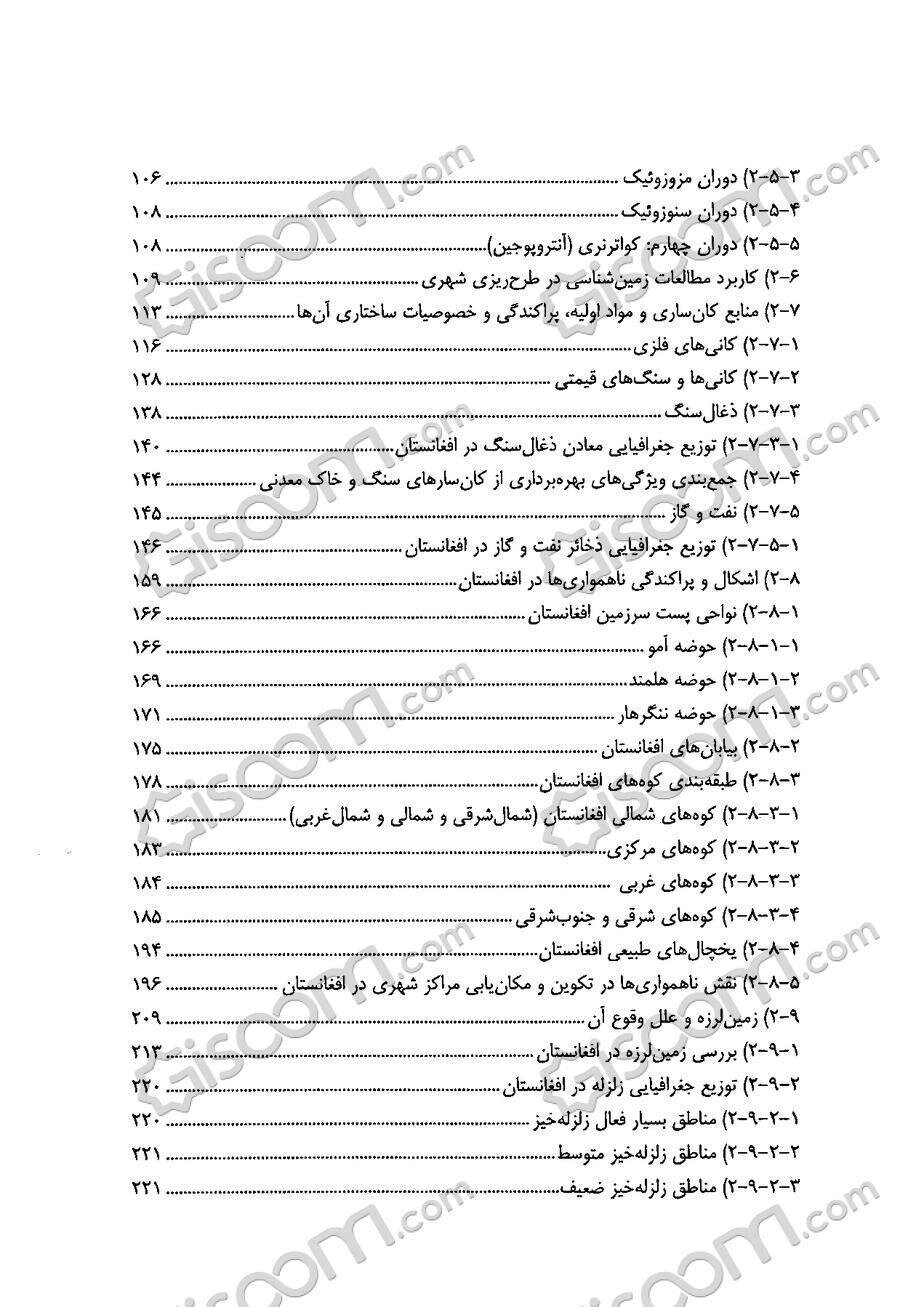 ۲-۵-۳) دوران مزوزوئیک ........ ۱۰۶
۲-۵-۴) دوران سنوزوئیک ........ ۱۰۸
۲-۵-۵) دوران چهارم: کواترنری (آنتروپوجین) ........ ۱۰۸
۲-۶) کاربرد مطالعات زمین‌شناسی در طرح‌ریزی شهری ........ ۱۰۹
۲-۷) منابع کان‌ساری و مواد اولیه، پراکندگی و خصوصیات ساختاری آن‌ها ........ ۱۱۳
۲-۷-۱) کانی‌های فلزی ........ ۱۱۶
۲-۷-۲) کانی‌ها و سنگ‌های قیمتی ........ ۱۲۸
۲-۷-۳) ذغال‌سنگ ........ ۱۳۸
۲-۷-۳-۱) توزیع جغرافیایی معادن ذغال‌سنگ در افغانستان ........ ۱۴۰
۲-۷-۴) جمع‌بندی ویژگی‌های بهره‌برداری از کان‌سارهای سنگ و خاک معدنی ........ ۱۴۴
۲-۷-۵) نفت و گاز ........ ۱۴۵
۲-۷-۵-۱) توزیع جغرافیایی ذخائر نفت و گاز در افغانستان ........ ۱۴۶
۲-۸) اشکال و پراکندگی ناهمواری‌ها در افغانستان ........ ۱۵۹
۲-۸-۱) نواحی پست سرزمین افغانستان ........ ۱۶۶
۲-۸-۱-۱) حوضه آمو ........ ۱۶۶
۲-۸-۱-۲) حوضه هلمند ........ ۱۶۹
۲-۸-۱-۳) حوضه ننگرهار ........ ۱۷۱
۲-۸-۲) بیابان‌های افغانستان ........ ۱۷۵
۲-۸-۳) طبقه‌بندی کوه‌های افغانستان ........ ۱۷۸
۲-۸-۳-۱) کوه‌های شمالی افغانستان (شمال‌شرقی و شمالی و شمال‌غربی) ........ ۱۸۱
۲-۸-۳-۲) کوه‌های مرکزی ........ ۱۸۳
۲-۸-۳-۳) کوه‌های غربی ........ ۱۸۴
۲-۸-۳-۴) کوه‌های شرقی و جنوب‌شرقی ........ ۱۸۵
۲-۸-۴) یخچال‌های طبیعی افغانستان ........ ۱۹۴
۲-۸-۵) نقش ناهمواری‌ها در تکوین و مکان‌یابی مراکز شهری در افغانستان ........ ۱۹۶
۲-۹) زمین‌لرزه و علل وقوع آن ........ ۲۰۹
۲-۹-۱) بررسی زمین‌لرزه در افغانستان ........ ۲۱۳
۲-۹-۲) توزیع جغرافیایی زلزله در افغانستان ........ ۲۲۰
۲-۹-۲-۱) مناطق بسیار فعال زلزله‌خیز ........ ۲۲۰
۲-۹-۲-۲) مناطق زلزله‌خیز متوسط ........ ۲۲۱
۲-۹-۲-۳) مناطق زلزله‌خیز ضعیف ........ ۲۲۱
Giscoom.com